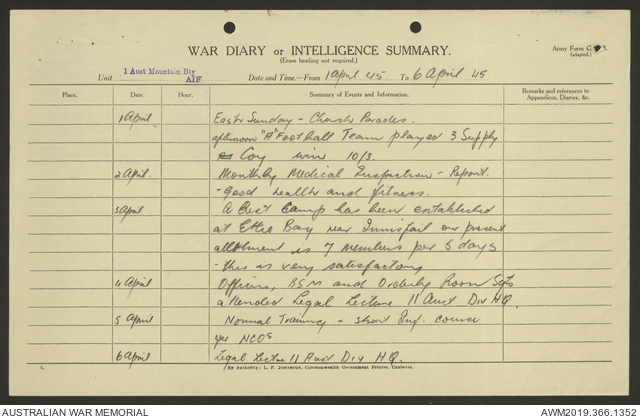 WAR DIARY or INTELLIGENCE SUMMARY.
(Erase heading not required.)
Army Form C.
(adapted.)
Unit 1 Aust Mountain Bty AIF. Date and Time.—From 1 April 45 To 6 April 45
Place. Date. Hour. Summary of Events and Information. Remarks and references to Appendices, Diaries, &c.
1 April Easter Sunday - Church Parades.
afternoon "A" Football Team played 3 Supply
Coy win 10/3.
2 April. Monthly Medical Inspection - Report.
- Good health and fitness.
3 April A Rest Camp has been established
at Ettie Bay near Innisfail our present
allotment is 7 members per 5 days
- this is very satisfactory
4 April Officers, BSM and Orderly Room Sgts
attended Legal Lecture 11 Aust Div HQ.
5 April Normal Training - short Inf. course
for NCOs
6 April Legal Lecture 11 Aust Div HQ.
1. By Authority: L. F. Johnston, Commonwealth Government Printer, Canberra.
AUSTRALIAN WAR MEMORIAL AWM2019.366.1352